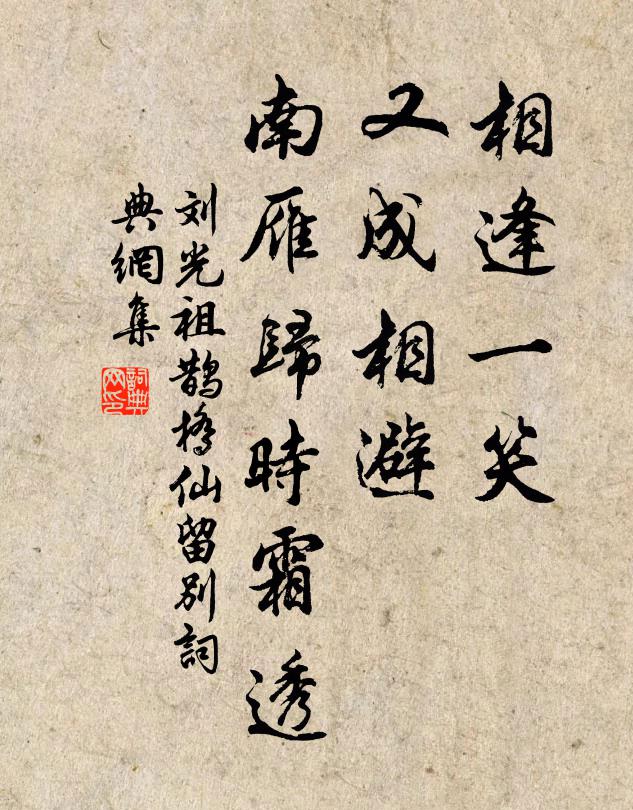 相逢一笑
又成相避
南雁歸時霜透
刘光祖鵲橋仙留别詞
典網集
詞典
网印